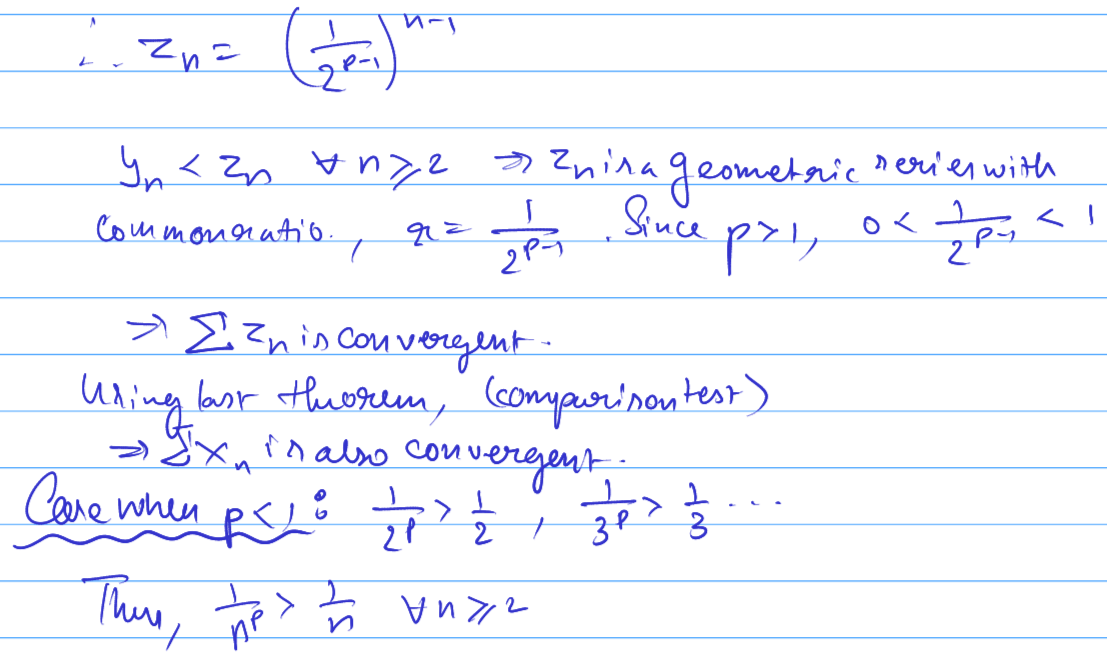 ∴ zₙ = (1/2^(p-1))^(n-1)
yₙ < zₙ ∀ n ≥ 2 ⇒ zₙ is a geometric series with
common ratio., r = 1/2^(p-1) . Since p > 1, 0 < 1/2^(p-1) < 1
⇒ ∑ zₙ is convergent.
Using last theorem, (comparison test)
⇒ ∑ xₙ is also convergent.
Case when p < 1 : 1/2^p > 1/2 , 1/3^p > 1/3 ...
Thus, 1/n^p > 1/n ∀ n ≥ 2